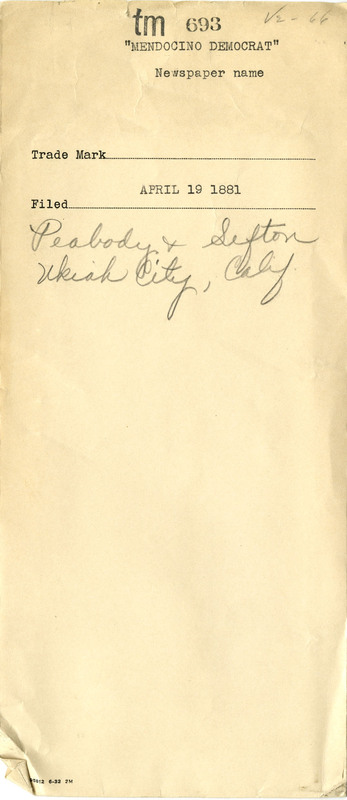 tm 693
V2-66
"MENDOCINO DEMOCRAT"
Newspaper name
Trade Mark
APRIL 19 1881
Filed
Peabody & Sefton
Ukiah City, Calif.
6-33 2M